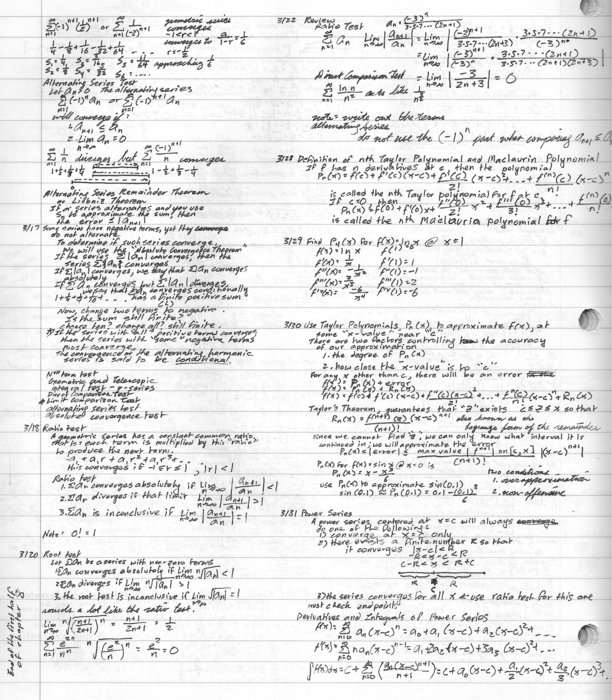 ∞Σn=1 (-1)^(n+1)/2^(n+1) or ∞Σn=1 1/(-2)^(n+1) geometric series
converges
-1<r<1
converges to a/(1-r) = 1/6
1/4 - 1/8 + 1/16 - 1/32 + 1/64
approaching 1/6
Alternating Series Test
Let an>0 The alternating series
∞Σn=1 (-1)^n an or ∞Σn=1 (-1)^(n+1) an
will converge if:
1. an+1 ≤ an
2. Lim n→∞ an = 0
∞Σn=1 1/n diverges, but ∞Σn=1 (-1)^(n+1)/n converges
1+1/2+1/3+1/4 1-1/2+1/3-1/4
Alternating Series Remainder Theorem
or Leibniz Theorem
If a series alternates and you use
Sn to approximate the sum, then
the error ≤ |an+1|
3/17 Some series have negative terms, yet they
do not alternate.
To determine if such series converge,
we will use the "absolute convergence theorem"
If the series Σ|an| converges, then the
series Σan converges
If Σ|an| converges, we say that Σan converges
absolutely
If Σan converges but Σ|an| diverges,
we say that Σan converges conditionally
has a finite positive sum
Now, change two terms to negative.
Is the sum still finite?
change ten? change all? still finite.
If the series with "all" positive terms converges
then the series with "some" negative terms
must converge.
The convergence of the alternating harmonic
series is said to be conditional.
Nth term test
Geometric and Telescopic
integral test - p-series
Direct Comparison Test
Limit Comparison Test
alternating series test
absolute convergence test
3/18 Ratio test
A geometric series has a constant common ratio,
that is each term is multiplied by this "ratio"
to produce the next term.
a1 + a1r + a1r² + a1r³ + ...
This converges if -1<r<1, |r|<1
Ratio Test
1. Σan converges absolutely if Lim n→∞ |an+1/an| < 1
2. Σan diverges if that limit Lim n→∞ |an+1/an| > 1
3. Σan is inconclusive if Lim n→∞ |an+1/an| = 1
Note: 0! = 1
3/20 Root test
Let Σan be a series with non-zero terms
1. Σan converges absolutely if Lim n→∞ ⁿ√|an| < 1
2. Σan diverges if Lim n→∞ ⁿ√|an| > 1
3. the root test is inconclusive if Lim n→∞ ⁿ√|an| = 1
sounds a lot like the ratio test.
Lim n→∞ ⁿ√((n+1)/(2n+1))^n = (n+1)/(2n+1) = 1/2
∞Σn=1 e^n/n^n ⁿ√(e/n)^n = e/n = 0
End of the first half
of chapter 8
3/22 Review
Ratio Test an = (-3)^n/(3·5·7...(2n+1))
∞Σn=1 an Lim n→∞ |an+1/an| = Lim n→∞ |(-3)^(n+1)/(3·5·7...(2n+3)) · 3·5·7...(2n+1)/(-3)^n|
= Lim n→∞ |(-3)^(n+1)/(-3)^n · 3·5·7...(2n+1)/(3·5·7...(2n+1)(2n+3))|
= Lim n→∞ |-3/(2n+3)| = 0
Direct Comparison Test
∞Σn=1 ln n/n² acts like
note: write out the terms
alternating series
do not use the (-1)^n part when comparing an+1 ≤ an
3/28 Definition of nth Taylor Polynomial and Maclaurin Polynomial
If f has n derivatives at c then the polynomial
Pn(x) = f(c) + f'(c)(x-c) + f''(c)/2! (x-c)² + ... + f^(n)(c)/n! (x-c)^n
is called the nth Taylor polynomial for f at c
If c=0 then
Pn(x) = f(0) + f'(0)x + f''(0)/2! x² + f'''(0)/3! x³ + ... + f^(n)(0)/n!
is called the nth Maclaurin polynomial for f
3/29 Find P4(x) for f(x) = ln x @ x=1
f(x) = ln x f(1) = 0
f'(x) = 1/x f'(1) = 1
f''(x) = -1/x² f''(1) = -1
f'''(x) = 2/x³ f'''(1) = 2
f⁴(x) = -6/x⁴ f⁴(1) = -6
3/30 Use Taylor Polynomials, Pn(x), to approximate f(x), at
some "x-value" near "c"
There are two factors controlling the accuracy
of our approximation
1. the degree of Pn(x)
2. how close the x-value is to "c"
For any x other than c, there will be an error
f(x) = Pn(x) + error
f(x) = Pn(x) + Rn(x)
f(x) = f(c) + f'(c)(x-c) + f''(c)(x-c)²/2! ... + f^n(c)(x-c)^n/n! + Rn(x)
Taylor's Theorem, guarantees that "z" exists c≤z≤x so that
Rn(x) = f^(n+1)(z)(x-c)^(n+1)/(n+1)! also known as the
lagrange form of the remainder
since we cannot find z, we can only know what interval it is
contained in, we will approximate the error
Rn(x) ≤ |error| ≤ |max value f^(n+1) on [c,x]|/(n+1)! |(x-c)^(n+1)|
P3(x) for f(x) = sin x @ x=0 is
P3(x) = x - x³/6
two conditions
1. our approximation
2. non-offensive
use P3(x) to approximate sin(0.1)
sin(0.1) ≈ P3(0.1) = 0.1 - (0.1)³/6
3/31 Power Series
A power series centered at x=c will always
do one of the following:
1) converge at x=c only
2) there exists a finite number R so that
it converges |x-c|<R
-R<x-c<R
c-R<x<R+c
R R
3) the series converges for all x ← use ratio test for this one
must check endpoints
Derivatives and Integrals of Power Series
f(x) = ∞Σn=0 an(x-c)^n = a0 + a1(x-c) + a2(x-c)² + ...
f'(x) = ∞Σn=1 n an(x-c)^(n-1) = a1 + 2a2(x-c) + 3a3(x-c)² + ...
∫f(x)dx = C + ∞Σn=0 (an(x-c)^(n+1)/(n+1)) = C + a0(x-c) + a1/2 (x-c)² + a2/3 (x-c)³ + ...